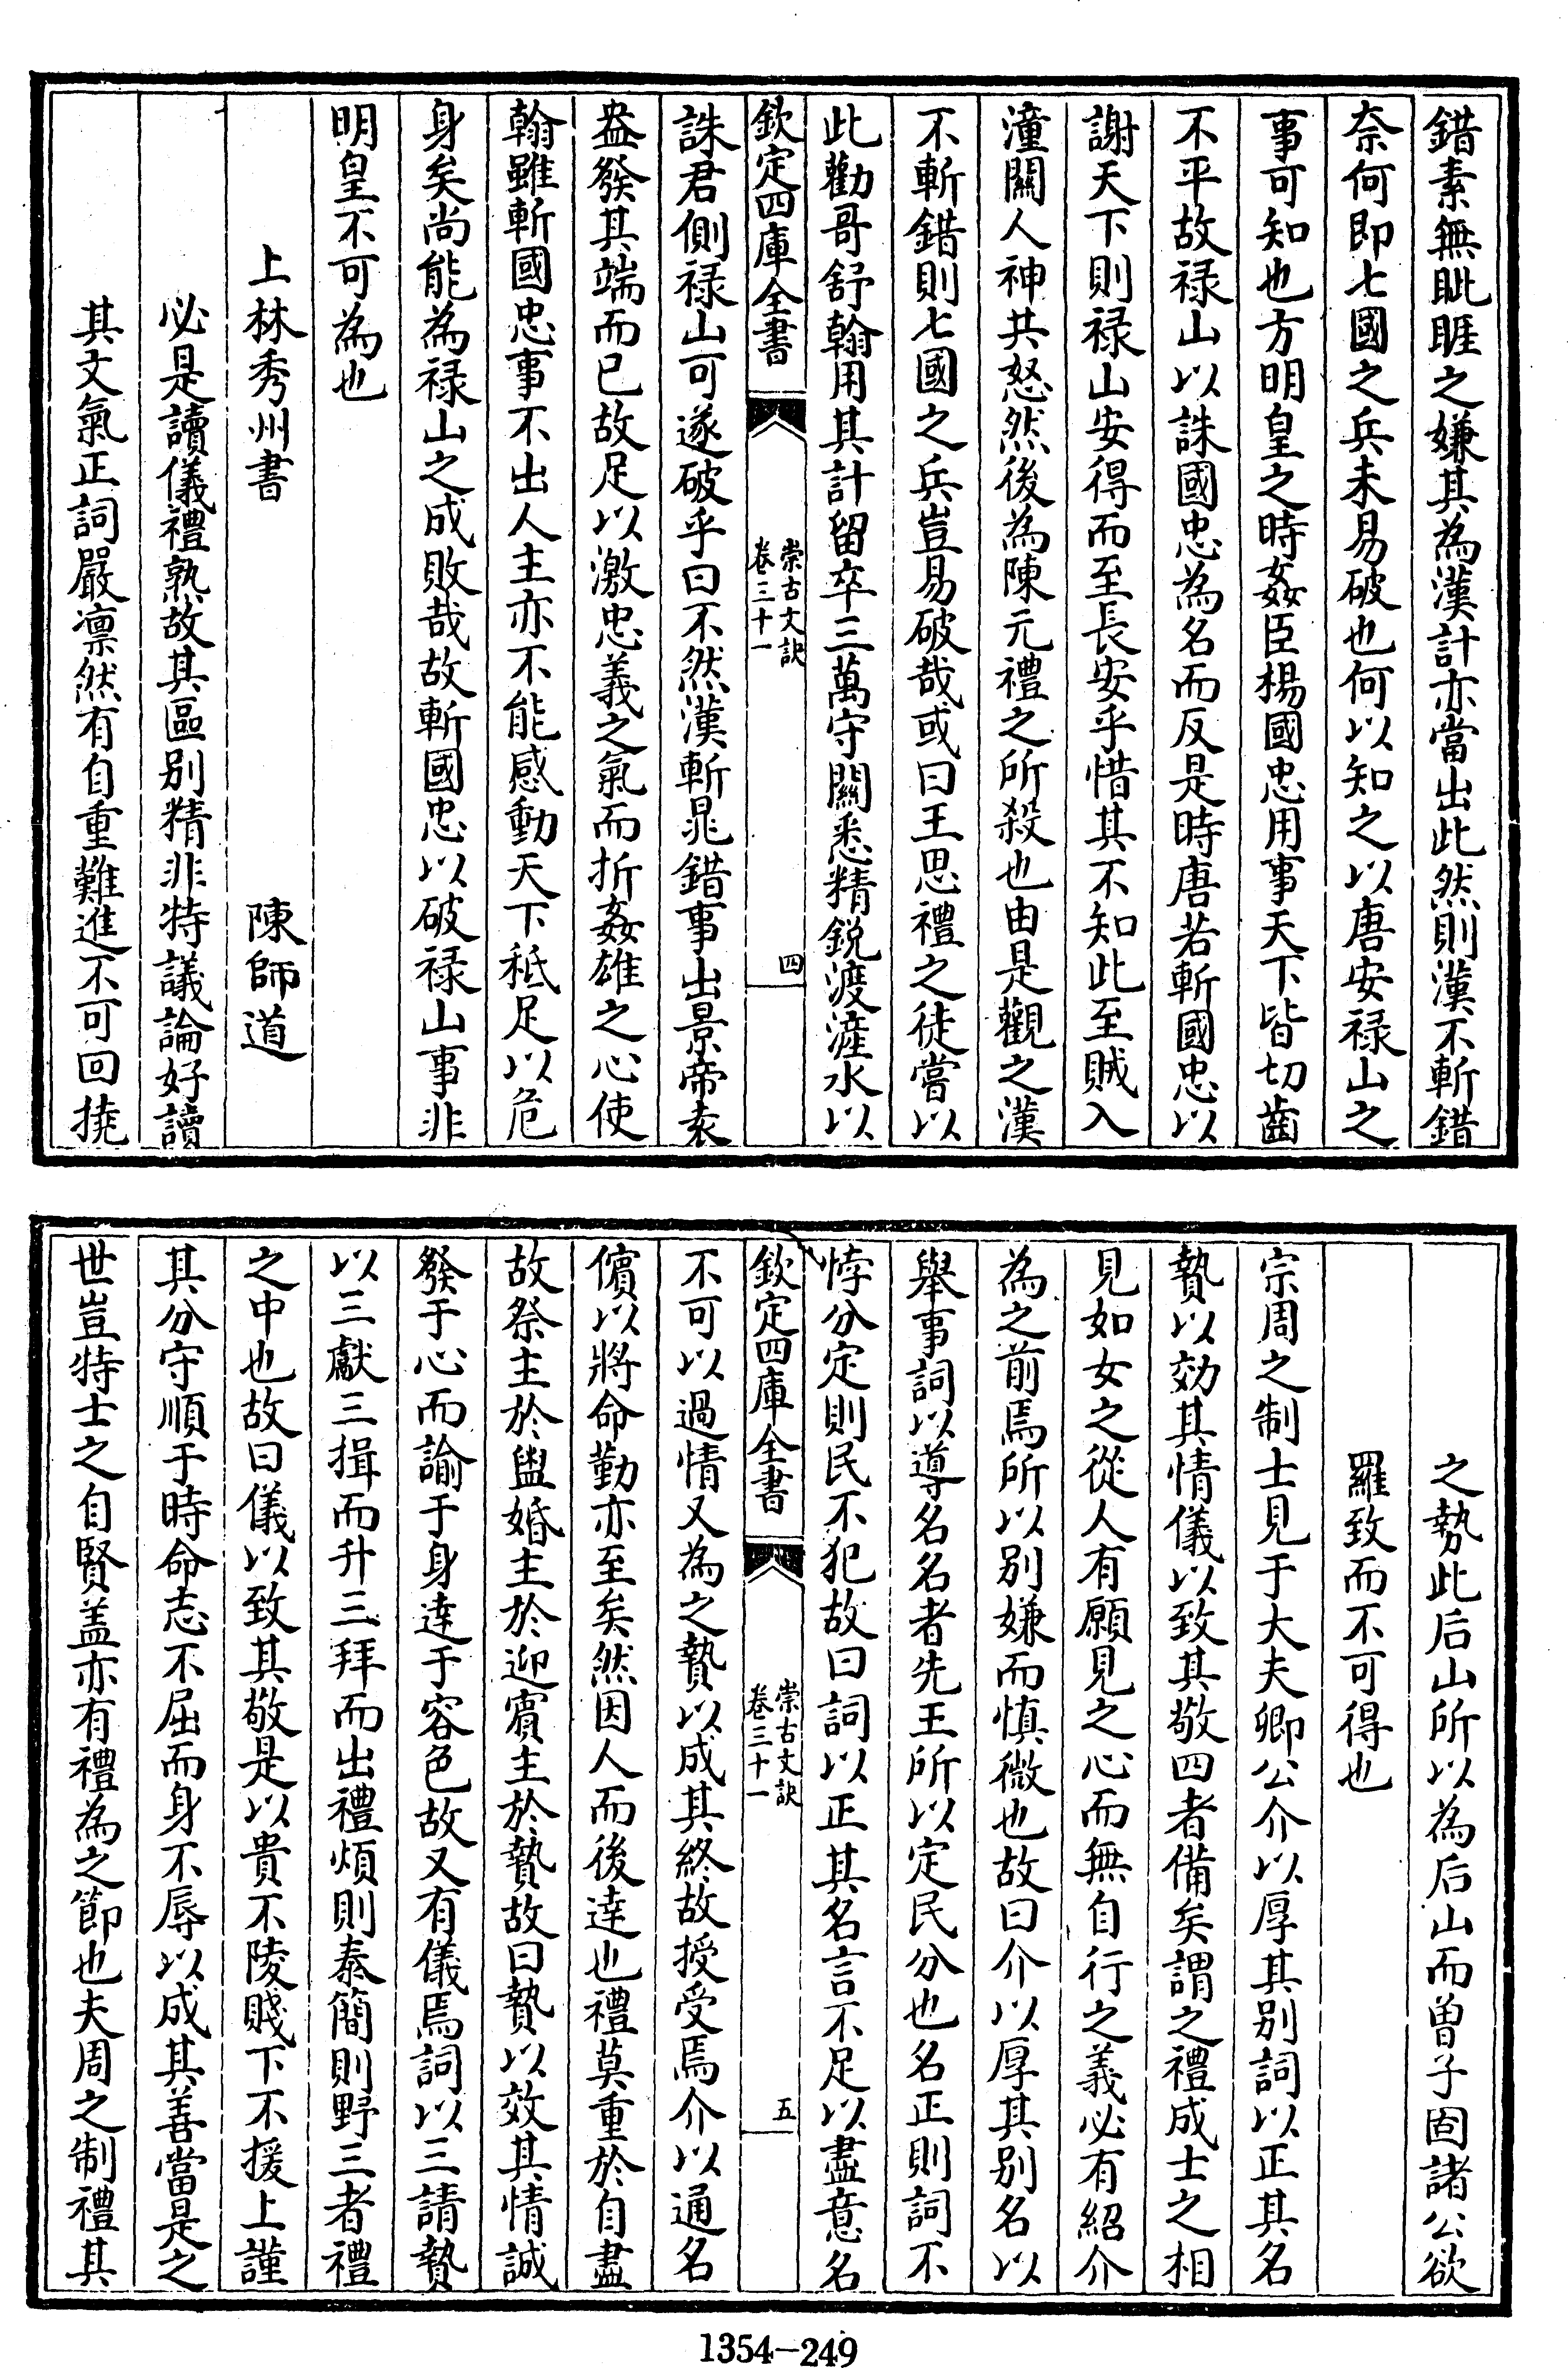 錯素無眦睚之嫌其為漢計亦當出此然則漢不斬錯
奈何即七國之兵未易破也何以知之以唐安祿山之
事可知也方明皇之時姦臣楊國忠用事天下皆切齒
不平故祿山以誅國忠為名而反是時唐若斬國忠以
謝天下則祿山安得而至長安乎惜其不知此至賊入
潼關人神共怒然後為陳元禮之所殺也由是觀之漢
不斬錯則七國之兵豈易破哉或曰王思禮之徒嘗以
此勸哥舒翰用其計留卒三萬守關悉精銳渡滻水以
欽定四庫全書
崇古文訣
卷三十一
四
誅君側祿山可遂破乎曰不然漢斬鼂錯事出景帝袁
盎發其端而已故足以激忠義之氣而折姦雄之心使
翰雖斬國忠事不出人主亦不能感動天下秪足以危
身矣尚能為祿山之成敗哉故斬國忠以破祿山事非
明皇不可為也
上林秀州書 陳師道
必是讀儀禮熟故其區别精非特議論好讀
其文氣正詞嚴凛然有自重難進不可回撓
之勢此后山所以為后山而曽子固諸公欲
羅致而不可得也
宗周之制士見于大夫卿公介以厚其别詞以正其名
贄以効其情儀以致其敬四者備矣謂之禮成士之相
見如女之從人有願見之心而無自行之義必有紹介
為之前焉所以别嫌而慎微也故曰介以厚其别名以
舉事詞以導名名者先王所以定民分也名正則詞不
悖分定則民不犯故曰詞以正其名言不足以盡意名
欽定四庫全書
崇古文訣
卷三十一
五
不可以過情又為之贄以成其終故授受焉介以通名
儐以將命勤亦至矣然因人而後達也禮莫重於自盡
故祭主於盥婚主於迎賓主於贄故曰贄以效其情誠
發于心而諭于身達于容色故又有儀焉詞以三請贄
以三獻三揖而升三拜而出禮煩則泰簡則野三者禮
之中也故曰儀以致其敬是以貴不陵賤下不援上謹
其分守順于時命志不屈而身不辱以成其善當是之
世豈特士之自賢盖亦有禮為之節也夫周之制禮其
1354-249